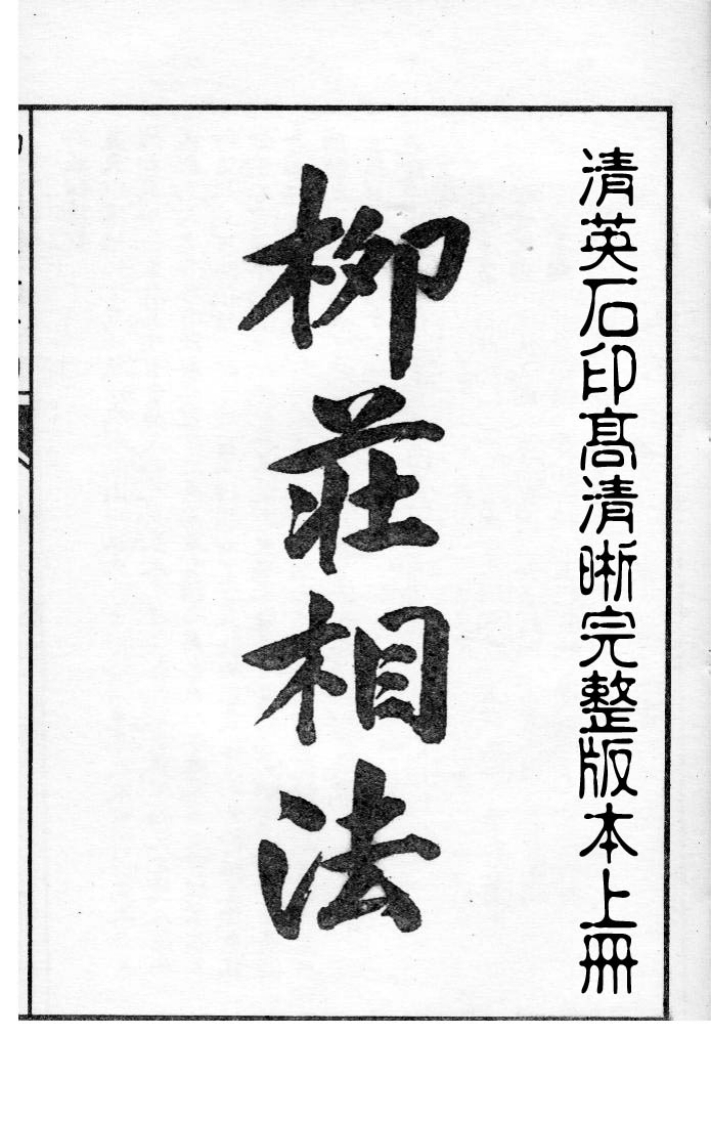 清英石印髙清晰完整版本上冊
柳莊相法